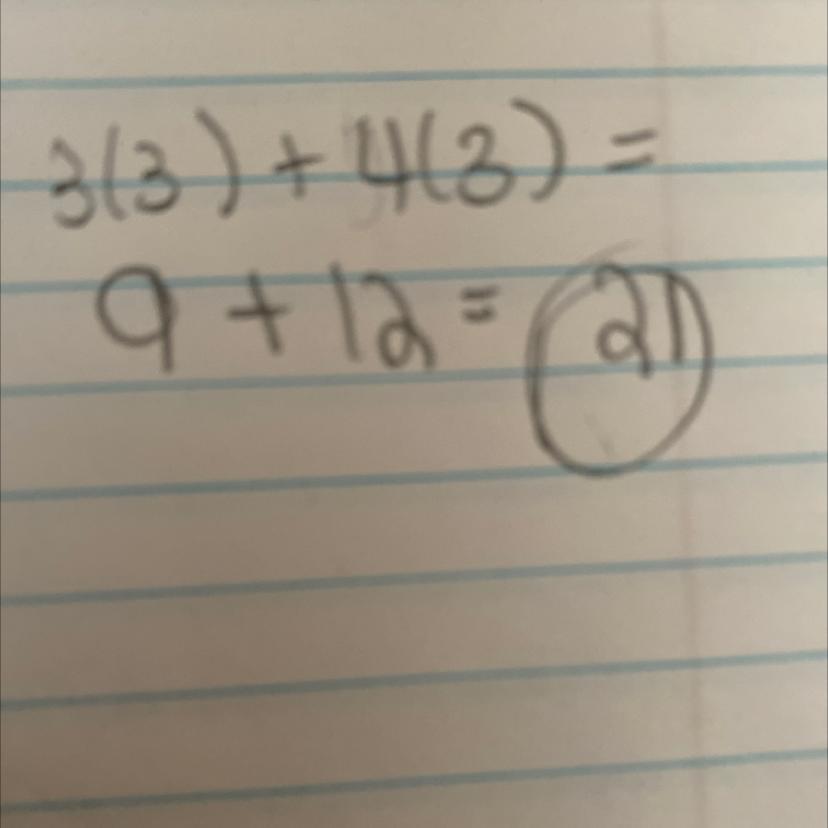 3(3) + 4(3) =
9 + 12 = 21